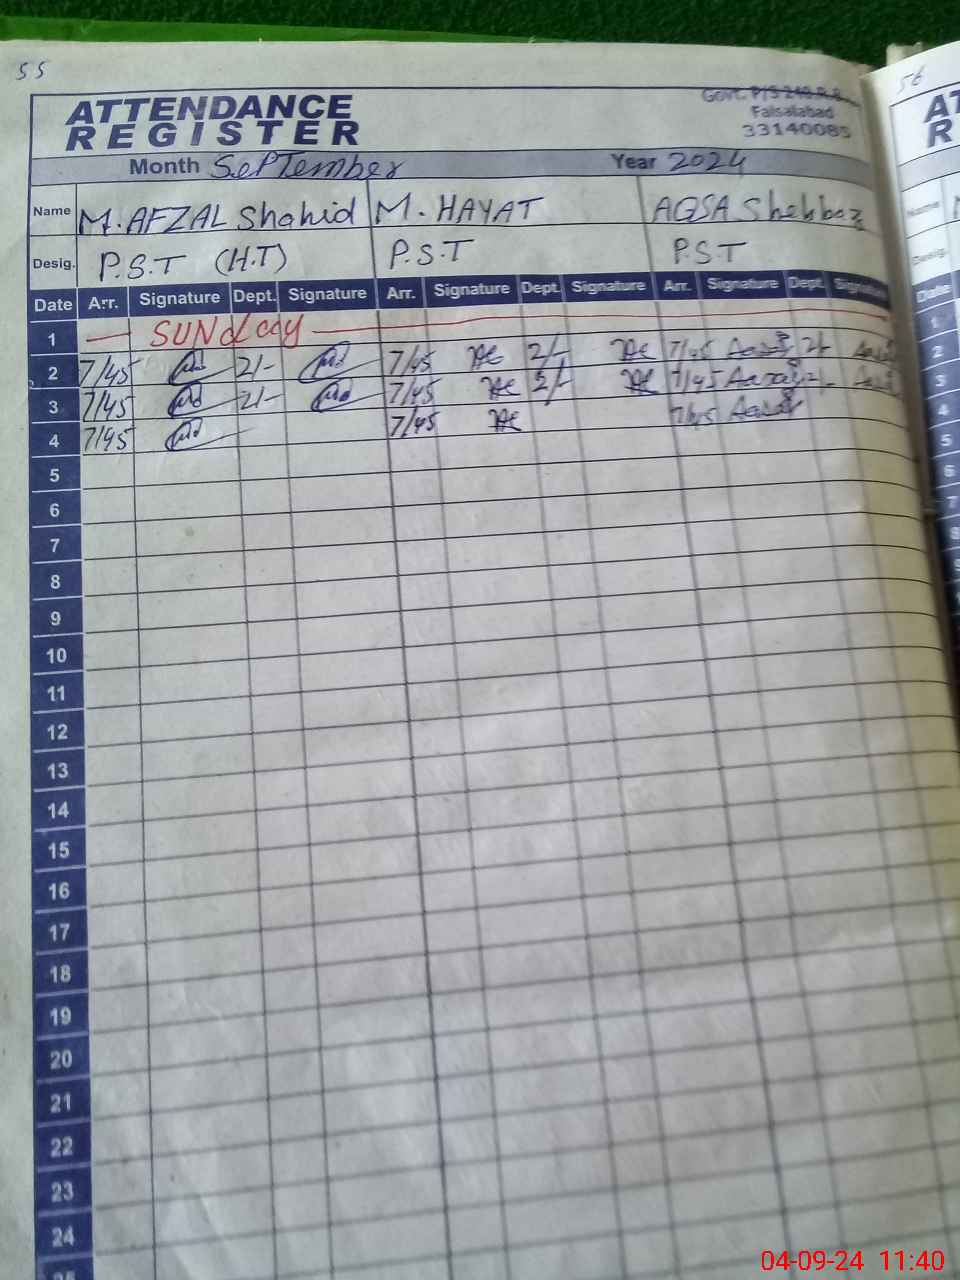 55
56
ATTENDANCE
REGISTER
Govt. P/S
Faisalabad
33140085
Month September Year 2024
Name M. AFZAL Shahid M. HAYAT AQSA Shehbaz
Desig. P.S.T (H.T) P.S.T P.S.T
Date Arr. Signature Dept. Signature Arr. Signature Dept. Signature Arr. Signature Dept. Signature
1 SUNday
2 7/45 2/- 7/45 2/- 7/45 2/-
3 7/45 2/- 7/45 2/- 7/45 2/-
4 7/45 7/45 7/45
5
6
7
8
9
10
11
12
13
14
15
16
17
18
19
20
21
22
23
24
25
AT
R
Name
Desig.
Date
1
2
3
4
5
6
7
8
9
04-09-24 11:40